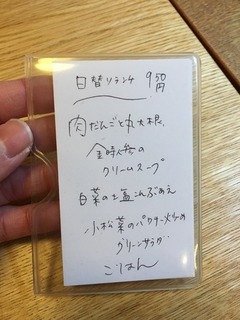 日替りランチ 950円
肉だんごと丸大根、
金時人参の
クリームスープ
白菜の塩こんぶあえ
小松菜のパクチー入りの
グリーンサラダ
ごはん